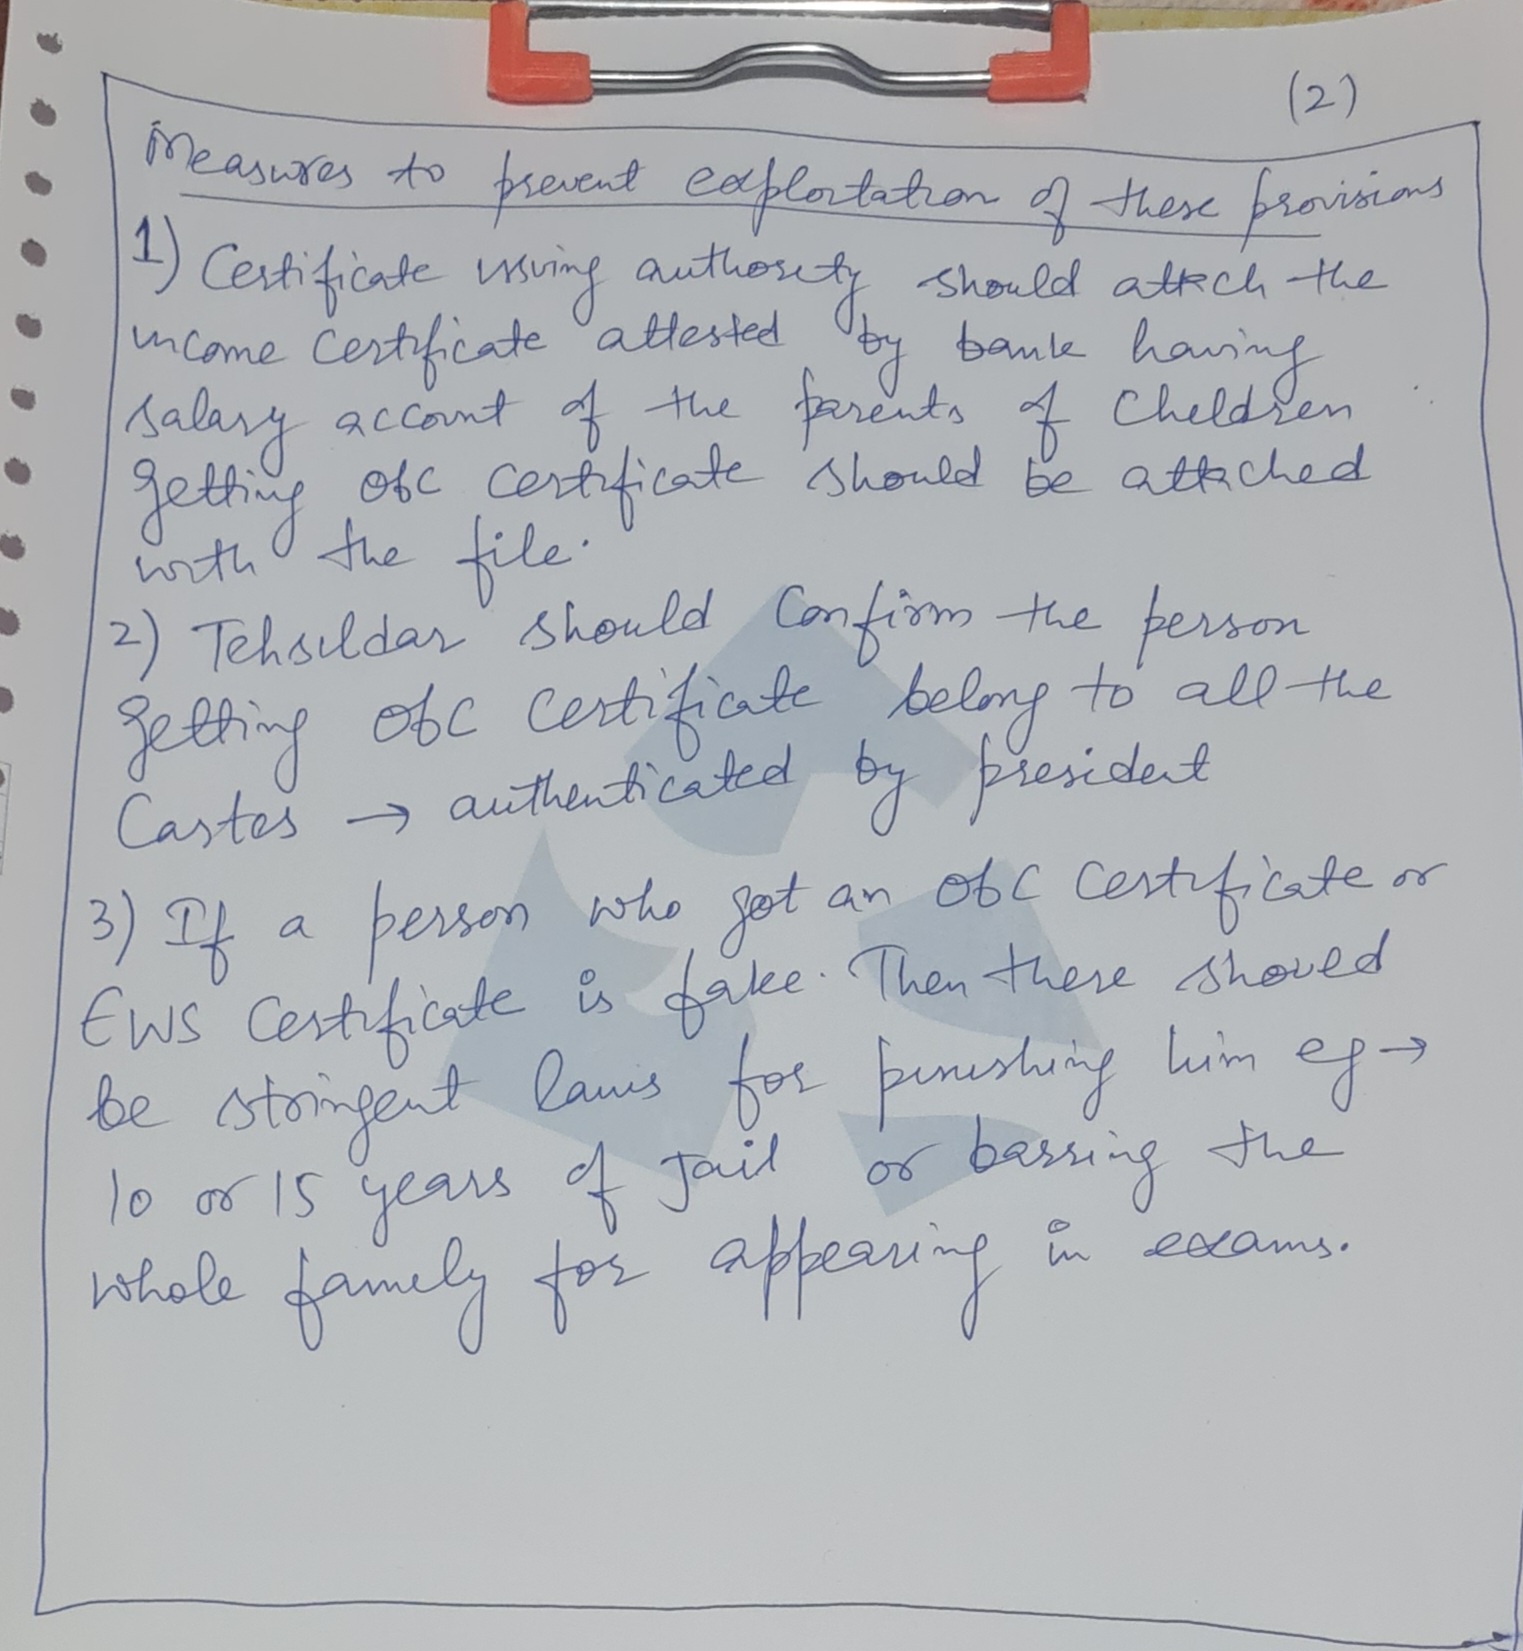 (2)
Measures to prevent exploitation of these provisions
1) Certificate issuing authority should attach the
income certificate attested by bank having
salary account of the parents of Children
getting obc certificate should be attached
with the file.
2) Tehsildar should Confirm the person
getting obc certificate belong to all the
Castes → authenticated by president
3) If a person who got an obc certificate or
EWS Certificate is fake. Then there shoued
be stringent laws for punishing him eg →
10 or 15 years of Jail or barring the
whole family for appearing in exams.